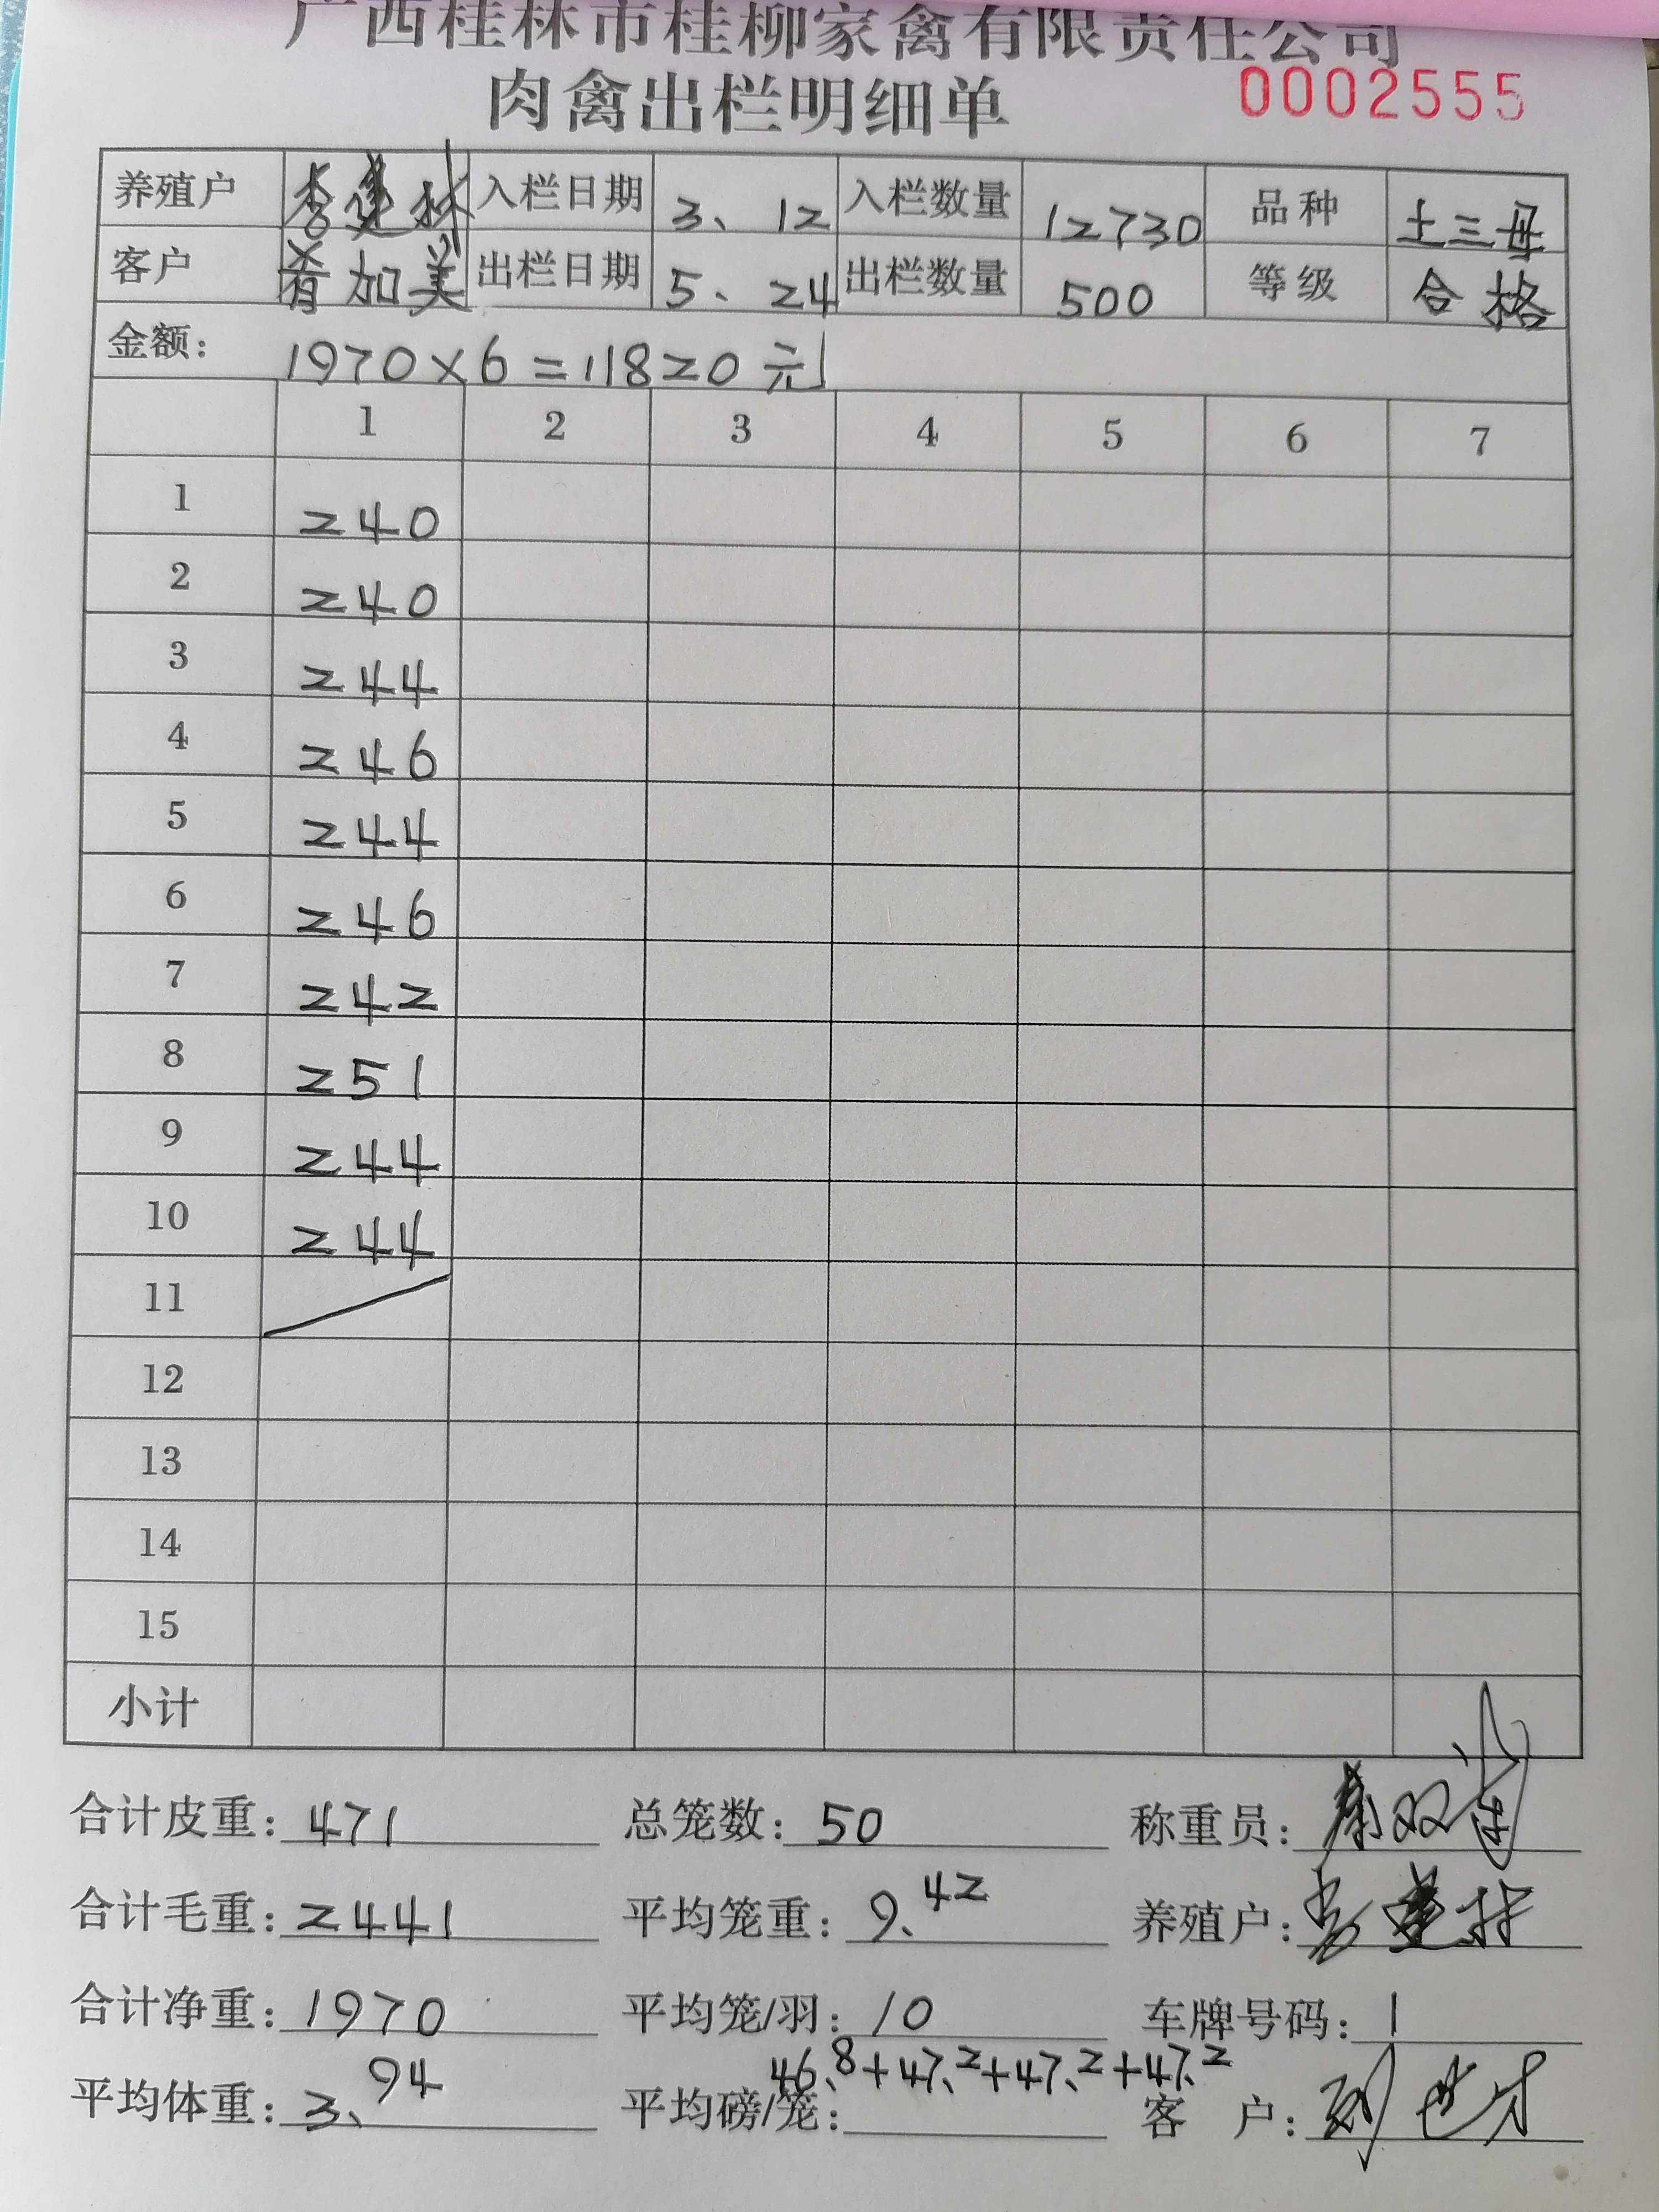 广西桂林市桂柳家禽有限责任公司
肉禽出栏明细单 0002555
养殖户 李建林 入栏日期 3、12 入栏数量 12730 品种 土三母
客户 肴加美 出栏日期 5、24 出栏数量 500 等级 合格
金额: 1970×6=11820元
1 2 3 4 5 6 7
1 240
2 240
3 244
4 246
5 244
6 246
7 242
8 251
9 244
10 244
11
12
13
14
15
小计
合计皮重: 471 总笼数: 50 称重员: 秦双
合计毛重: 2441 平均笼重: 9.42 养殖户: 李建林
合计净重: 1970 平均笼/羽: 10 车牌号码: 1
46.8+47.2+47.2+47.2
平均体重: 3.94 平均磅/笼: 客户: